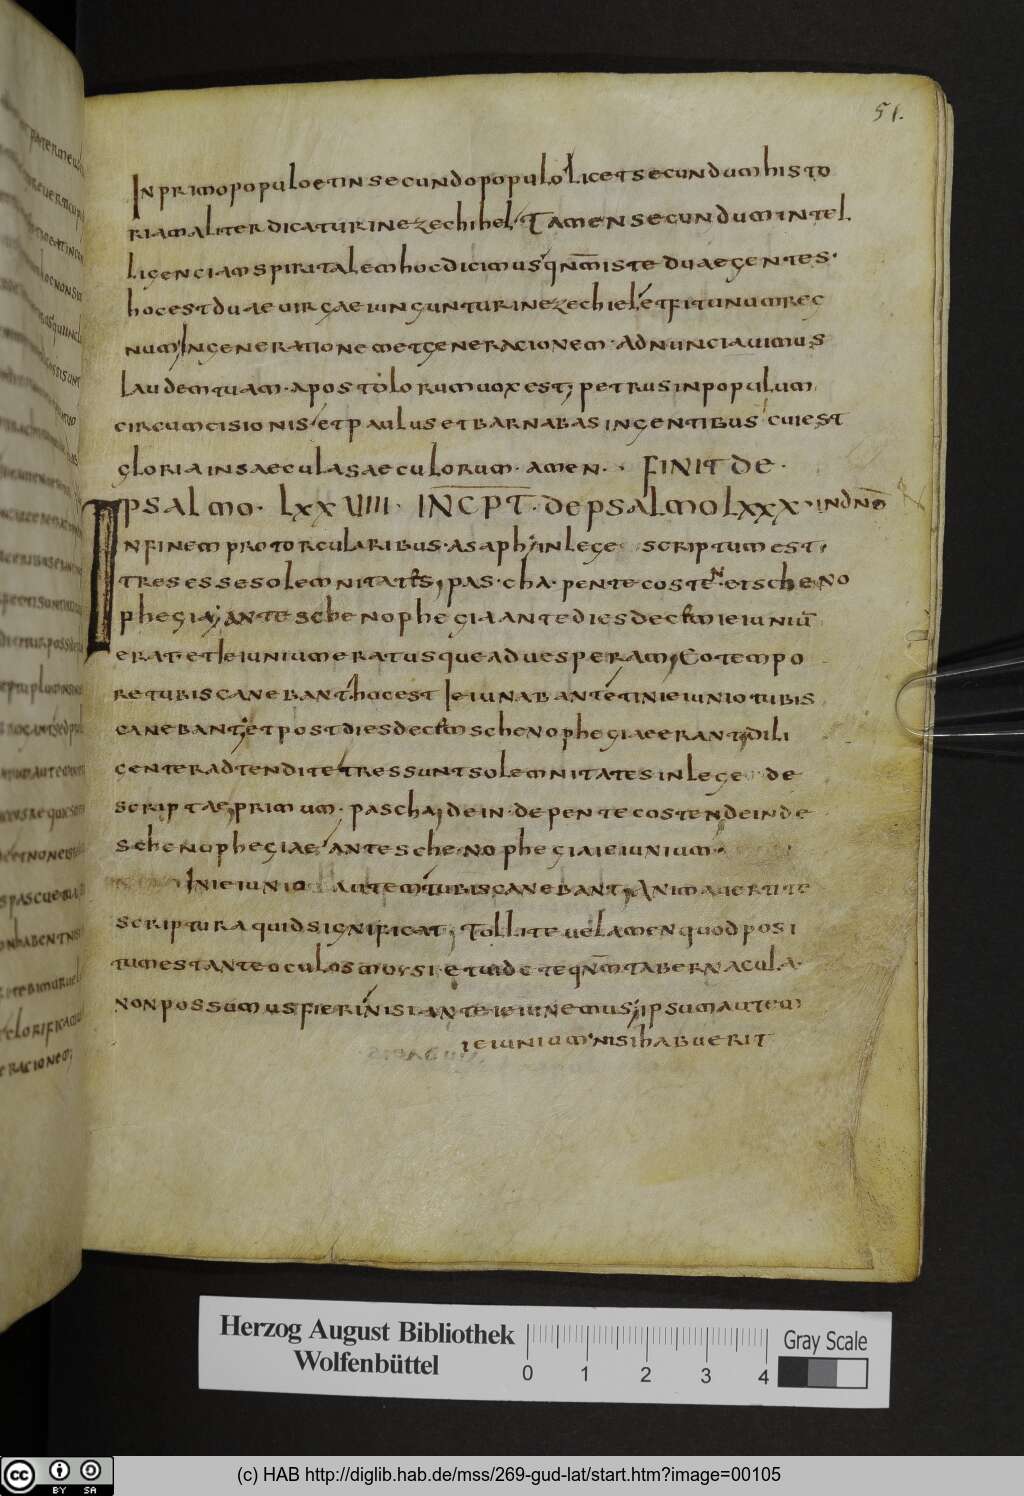 51.
In primo populo et in secundo populo licet secundum histo
rialiter dicatur in ezechihel tamen secundum intel
ligenciam spiritalem hoc dicimus qnm iste duae gentes
hoc est duae uirgae iunguntur in ezechiel et fit unum reg
num In generatione et generacionem adnunciauimus
laudem tuam apostolorum uox est petrus in populum
circumcisionis et paulus et barnabas in gentibus cui est
gloria in saecula saeculorum amen. FINIT DE
PSALMO LXXVIIII INCPT DE PSALMO LXXX
In finem pro torcularibus asaph in lege scriptum est
tres esse solemnitates pascha pentecosten et sceno
phegia ante schenophegia ante dies decem ieiuniu
erat et Ieiunium erat usque ad uesperam Eo tempo
re tubis canebant hoc est Ieiunabant et in ieiunio tubis
canebant et post dies decem schenophegiae erant Dili
genter adtendite tres sunt solemnitates in lege de
scriptae primum pascha dein de pentecosten deinde
schenophegiae ante schenophegia ieiunium
In ieiunio autem tubis canebant Animaduertite
scriptura quid significat Tollite uelamen quod posi
tum est ante oculos moysi et uidete qnm tabernacula
non possumus fieri nisi ante ieiunemus ipsum autem
ieiunium nisi habuerit
Herzog August Bibliothek
Wolfenbüttel
0 1 2 3 4
Gray Scale
cc BY SA
(c) HAB http://diglib.hab.de/mss/269-gud-lat/start.htm?image=00105